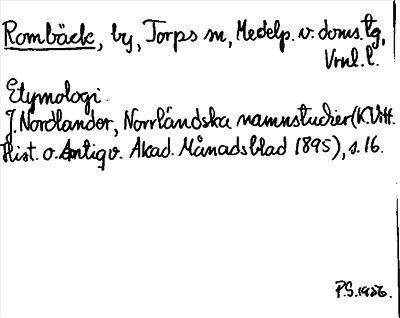 Rombäck, by, Torps sn, Medelp. v. doms. tg,
Vrnl. l.
Etymologi.
J. Nordlander, Norrländska namnstudier (K. Vitt.
Hist. o. Antiqv. Akad. Månadsblad 1895), s. 16.
P.S. 1956.